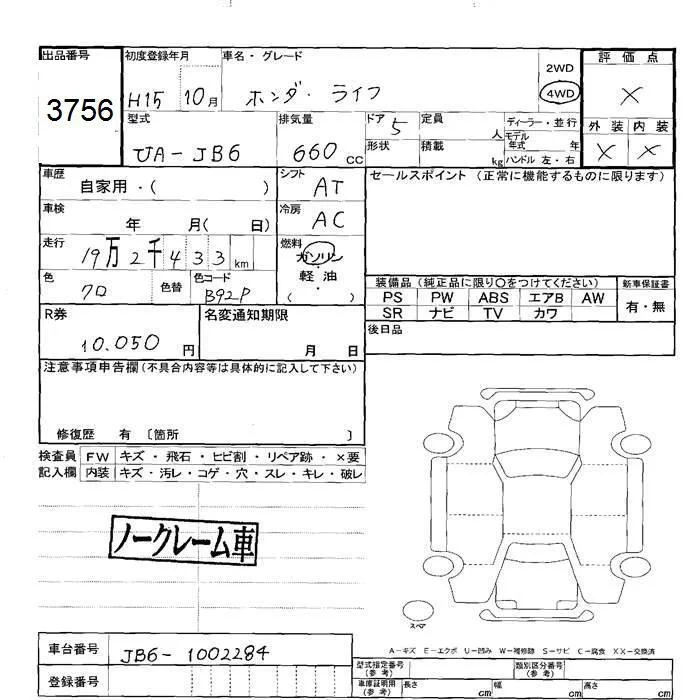 出品番号 初度登録年月 車名・グレード 評価点
3756 H15 10月 ホンダ・ライフ 2WD 4WD ×
型式 排気量 ドア 定員 ディーラー・並行 外装 内装
UA-JB6 660cc 5 人 モデル年式 年 × ×
形状 積載 kg ハンドル 左・右
車歴 シフト セールスポイント (正常に機能するものに限ります)
自家用・( ) AT
車検 冷房
年 月( 日) AC
走行 燃料
19万2千433km ガソリン・軽油
( )
色 色替 色コード
クロ B92P
装備品 (純正品に限り〇をつけてください) 新車保証書
PS PW ABS エアB AW 有・無
SR ナビ TV カワ
R券 名変通知期限 後日品
10.050円 月 日
注意事項申告欄(不具合内容等は具体的に記入して下さい)
修復歴 有 〔箇所 〕
検査員 FW キズ・飛石・ヒビ割・リペア跡・×要
記入欄 内装 キズ・汚レ・コゲ・穴・スレ・キレ・破レ
ノークレーム車
スペア
A-キズ E-エクボ U-凹み W-補修跡 S-サビ C-腐食 XX-交換済
車台番号 JB6-1002284
登録番号
型式指定番号(参考) 類別区分番号(参考)
車庫証明用(参考) 長さ cm 幅 cm 高さ cm